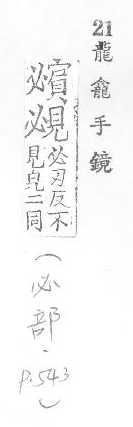 21 龍龕手鏡
覕 必刃反不
見皃二同
(必部·
P.543)